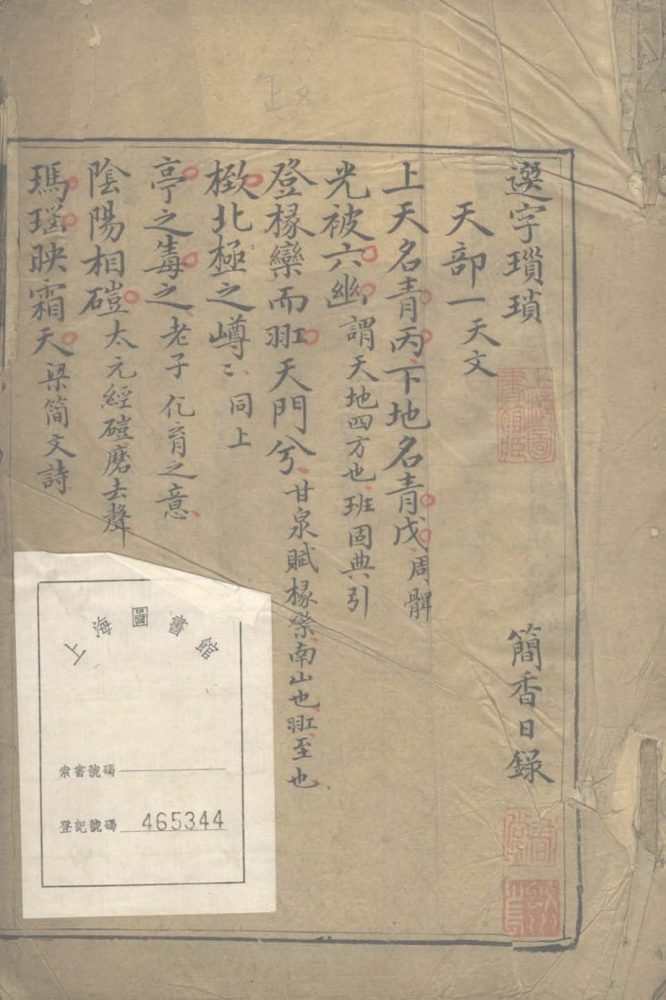 選字瑣瑣
簡香日錄
天部一 天文
上天名青丙下地名青戊 周髀
光被六幽 謂天地四方也 班固典引
登椽欒而羾天門兮 甘泉賦 椽欒南山也羾至也
椒北極之嶟〻 同上
亭之毒之 老子 化育之意
陰陽相磑 太元經 磑磨去聲
瑪瑙映霜天 梁簡文詩
上海圖書館
索書號碼
登記號碼 465344
上海圖書館藏